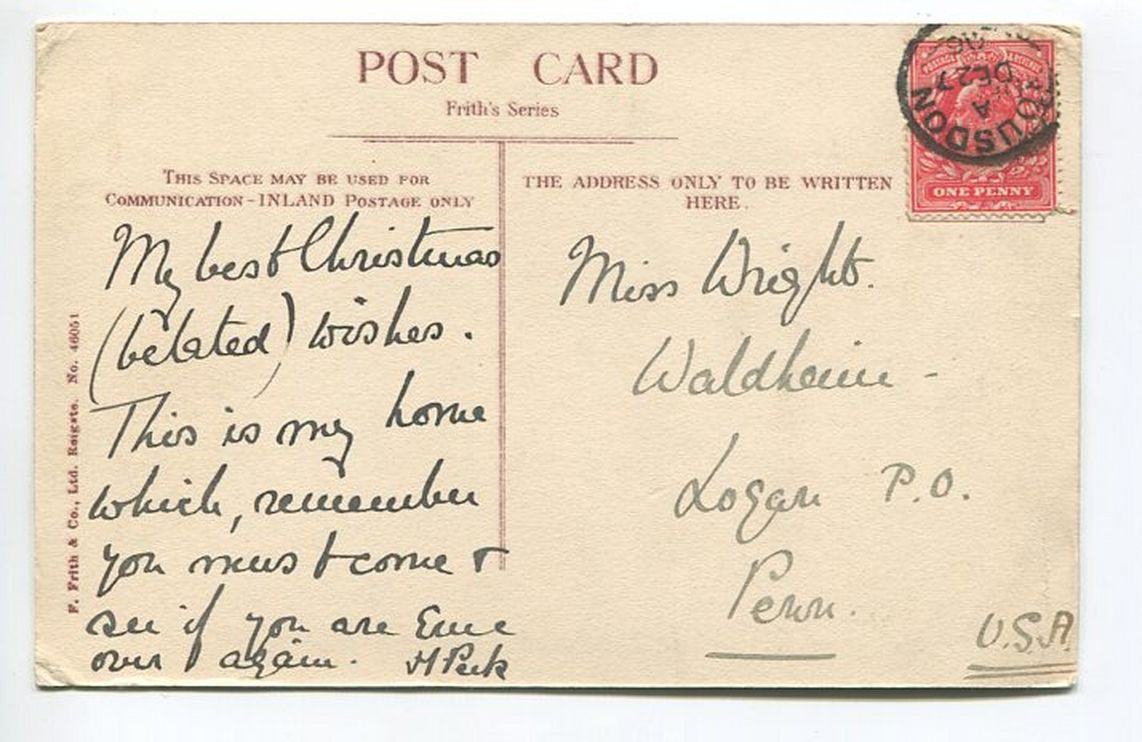 POST CARD
Frith's Series
THIS SPACE MAY BE USED FOR
COMMUNICATION - INLAND POSTAGE ONLY
THE ADDRESS ONLY TO BE WRITTEN
HERE.
My best Christmas
(belated) wishes.
This is my home
which, remember
you must come &
see if you are Ever
over again. H Peek
Miss Wright.
Waldheim -
Logan P.O.
Penn.
U.S.A
F. Frith & Co., Ltd. Reigate. No. 46051
POSTAGE REVENUE
ONE PENNY
ROUSDON
A
DE 27
06